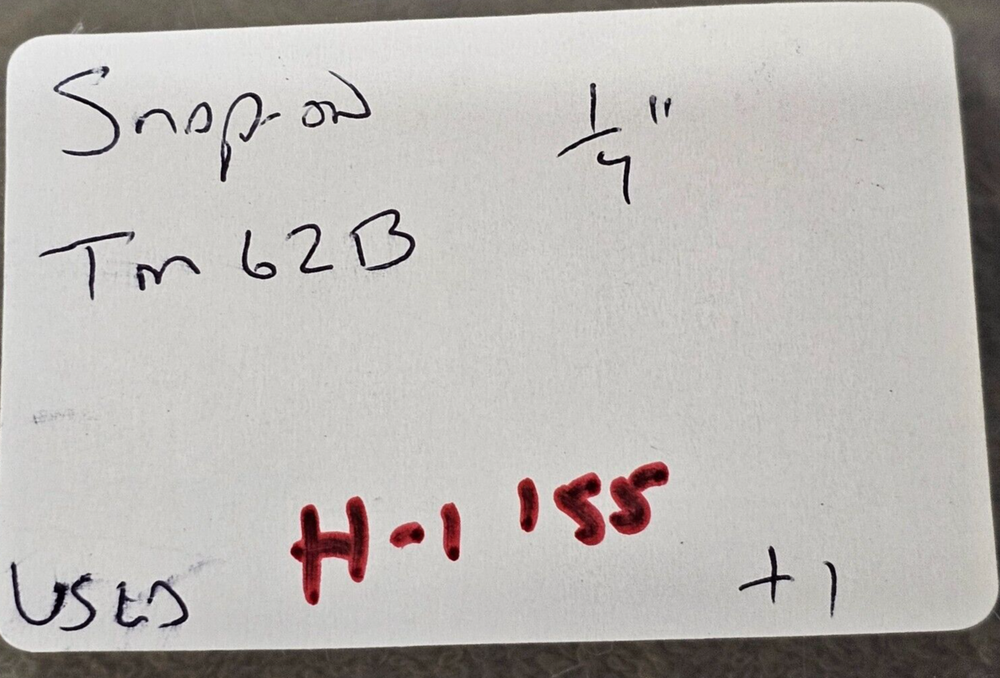 Snap-on 1/4"
Tm 62B
H-1 155
USED +1